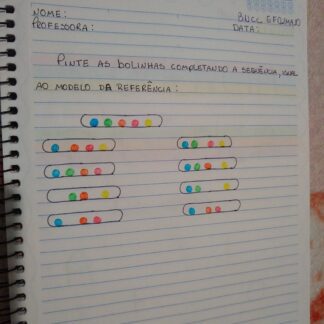 NOME:
PROFESSORA: DATA:
PINTE AS BOLINHAS COMPLETANDO A SEQUÊNCIA, IGUAL
AO MODELO DA REFERÊNCIA: